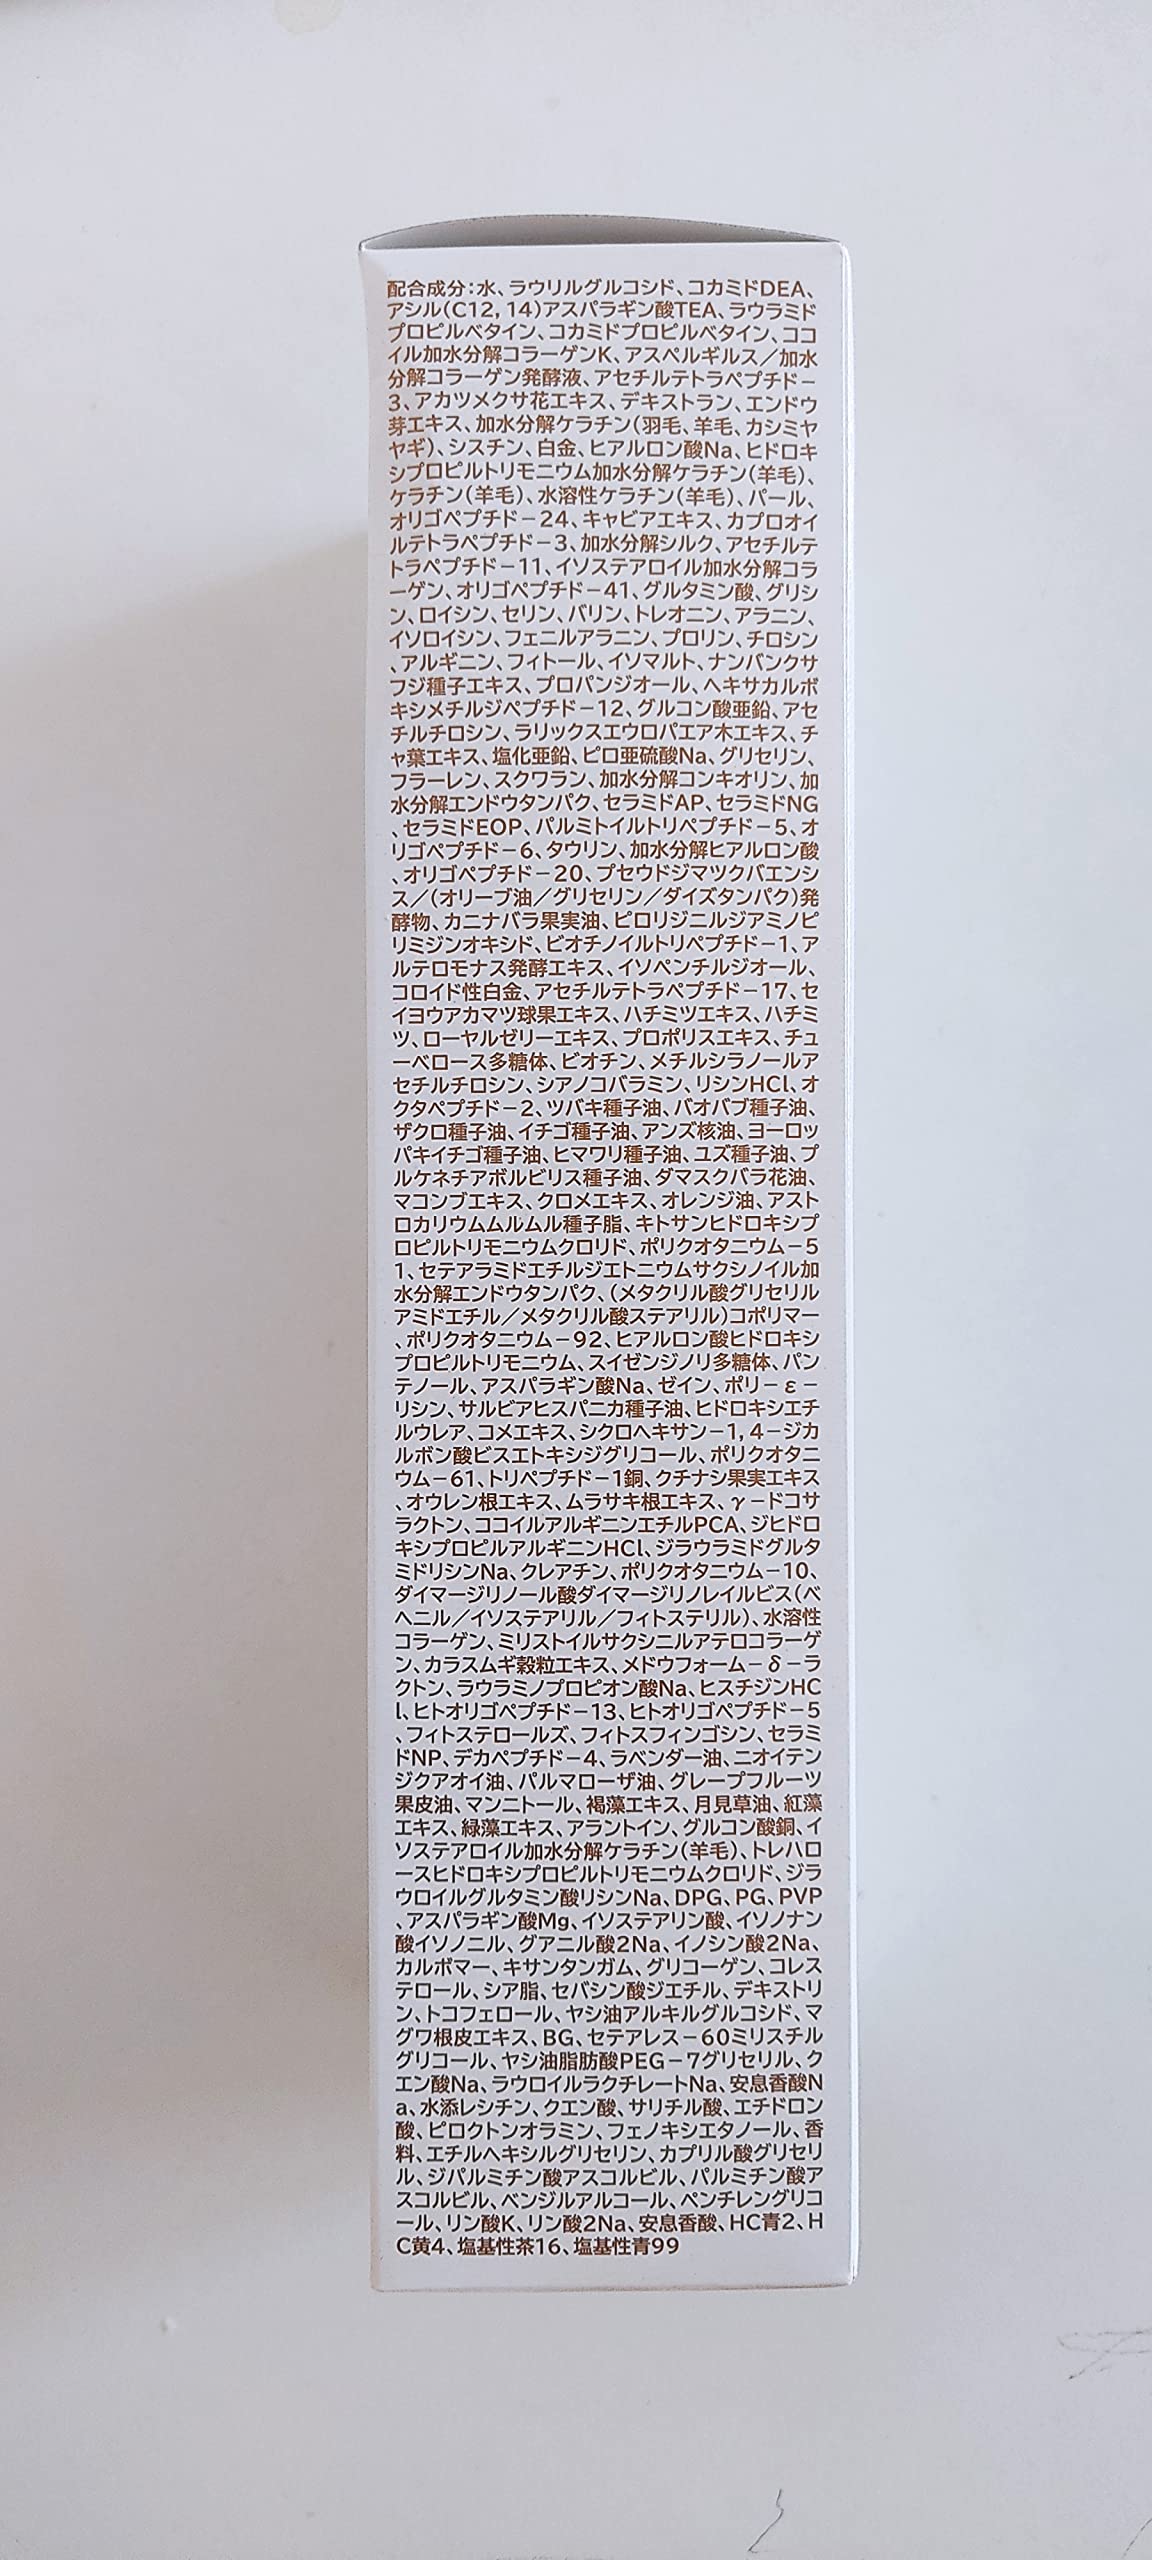 配合成分：水、ラウリルグルコシド、コカミドDEA、
アシル(C12，14)アスパラギン酸TEA、ラウラミド
プロピルベタイン、コカミドプロピルベタイン、ココ
イル加水分解コラーゲンK、アスペルギルス／加水
分解コラーゲン発酵液、アセチルテトラペプチド－
3、アカツメクサ花エキス、デキストラン、エンドウ
芽エキス、加水分解ケラチン(羽毛、羊毛、カシミヤ
ヤギ)、シスチン、白金、ヒアルロン酸Na、ヒドロキ
シプロピルトリモニウム加水分解ケラチン(羊毛)、
ケラチン(羊毛)、水溶性ケラチン(羊毛)、パール、
オリゴペプチド－24、キャビアエキス、カプロオイ
ルテトラペプチド－3、加水分解シルク、アセチルテ
トラペプチド－11、イソステアロイル加水分解コラ
ーゲン、オリゴペプチド－41、グルタミン酸、グリシ
ン、ロイシン、セリン、バリン、トレオニン、アラニン、
イソロイシン、フェニルアラニン、プロリン、チロシン
、アルギニン、フィトール、イソマルト、ナンバンクサ
フジ種子エキス、プロパンジオール、ヘキサカルボ
キシメチルジペプチド－12、グルコン酸亜鉛、アセ
チルチロシン、ラリックスエウロパエア木エキス、チ
ャ葉エキス、塩化亜鉛、ピロ亜硫酸Na、グリセリン、
フラーレン、スクワラン、加水分解コンキオリン、加
水分解エンドウタンパク、セラミドAP、セラミドNG
、セラミドEOP、パルミトイルトリペプチド－5、オ
リゴペプチド－6、タウリン、加水分解ヒアルロン酸
、オリゴペプチド－20、プセウドジマツクバエンシ
ス／(オリーブ油／グリセリン／ダイズタンパク)発
酵物、カニナバラ果実油、ピロリジニルジアミノピ
リミジンオキシド、ビオチノイルトリペプチド－1、ア
ルテロモナス発酵エキス、イソペンチルジオール、
コロイド性白金、アセチルテトラペプチド－17、セ
イヨウアカマツ球果エキス、ハチミツエキス、ハチミ
ツ、ローヤルゼリーエキス、プロポリスエキス、チュ
ーベロース多糖体、ビオチン、メチルシラノールア
セチルチロシン、シアノコバラミン、リシンHCl、オ
クタペプチド－2、ツバキ種子油、バオバブ種子油、
ザクロ種子油、イチゴ種子油、アンズ核油、ヨーロッ
パキイチゴ種子油、ヒマワリ種子油、ユズ種子油、プ
ルケネチアボルビリス種子油、ダマスクバラ花油、
マコンブエキス、クロメエキス、オレンジ油、アスト
ロカリウムムルムル種子脂、キトサンヒドロキシプ
ロピルトリモニウムクロリド、ポリクオタニウム－5
1、セテアラミドエチルジエトニウムサクシノイル加
水分解エンドウタンパク、(メタクリル酸グリセリル
アミドエチル／メタクリル酸ステアリル)コポリマー
、ポリクオタニウム－92、ヒアルロン酸ヒドロキシ
プロピルトリモニウム、スイゼンジノリ多糖体、パン
テノール、アスパラギン酸Na、ゼイン、ポリ－ε－
リシン、サルビアヒスパニカ種子油、ヒドロキシエチ
ルウレア、コメエキス、シクロヘキサン－1，4－ジカ
ルボン酸ビスエトキシジグリコール、ポリクオタニ
ウム－61、トリペプチド－1銅、クチナシ果実エキス
、オウレン根エキス、ムラサキ根エキス、γ－ドコサ
ラクトン、ココイルアルギニンエチルPCA、ジヒドロ
キシプロピルアルギニンHCl、ジラウラミドグルタ
ミドリシンNa、クレアチン、ポリクオタニウム－10、
ダイマージリノール酸ダイマージリノレイルビス(ベ
ヘニル／イソステアリル／フィトステリル)、水溶性
コラーゲン、ミリストイルサクシニルアテロコラーゲ
ン、カラスムギ穀粒エキス、メドウフォーム－δ－ラ
クトン、ラウラミノプロピオン酸Na、ヒスチジンHC
l、ヒトオリゴペプチド－13、ヒトオリゴペプチド－5
、フィトステロールズ、フィトスフィンゴシン、セラミ
ドNP、デカペプチド－4、ラベンダー油、ニオイテン
ジクアオイ油、パルマローザ油、グレープフルーツ
果皮油、マンニトール、褐藻エキス、月見草油、紅藻
エキス、緑藻エキス、アラントイン、グルコン酸銅、イ
ソステアロイル加水分解ケラチン(羊毛)、トレハロ
ースヒドロキシプロピルトリモニウムクロリド、ジラ
ウロイルグルタミン酸リシンNa、DPG、PG、PVP
、アスパラギン酸Mg、イソステアリン酸、イソノナン
酸イソノニル、グアニル酸2Na、イノシン酸2Na、
カルボマー、キサンタンガム、グリコーゲン、コレス
テロール、シア脂、セバシン酸ジエチル、デキストリ
ン、トコフェロール、ヤシ油アルキルグルコシド、マ
グワ根皮エキス、BG、セテアレス－60ミリスチル
グリコール、ヤシ油脂肪酸PEG－7グリセリル、ク
エン酸Na、ラウロイルラクチレートNa、安息香酸N
a、水添レシチン、クエン酸、サリチル酸、エチドロン
酸、ピロクトンオラミン、フェノキシエタノール、香
料、エチルヘキシルグリセリン、カプリル酸グリセリ
ル、ジパルミチン酸アスコルビル、パルミチン酸ア
スコルビル、ベンジルアルコール、ペンチレングリコ
ール、リン酸K、リン酸2Na、安息香酸、HC青2、H
C黄4、塩基性茶16、塩基性青99